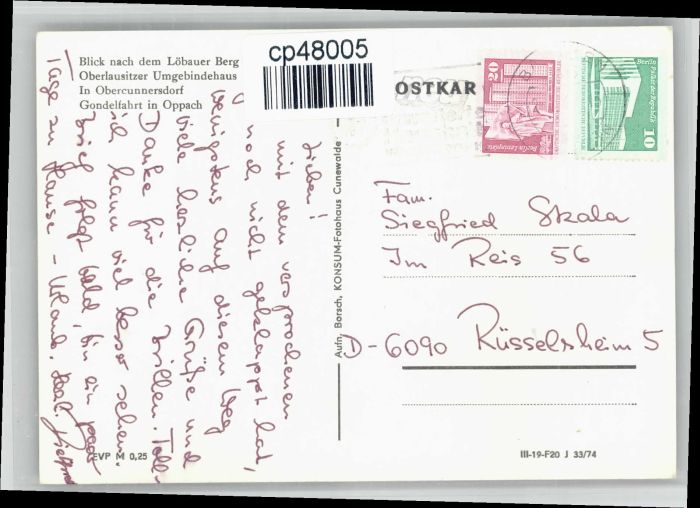 Blick nach dem Löbauer Berg
Oberlausitzer Umgebindehaus
In Obercunnersdorf
Gondelfahrt in Oppach
cp48005
OSTKAR
20
Berlin-Leninplatz
Berlin, Palast der Republik
10
Lieben!
mit dem versprochenen
noch nicht geklappt hat,
wenigstens auf diesem Weg
viele herzliche Grüße und
Danke für die Brillen. Toll
ich kann viel besser sehen.
Brief folgt bald, bin ein paar
Tage zu Hause - Urlaub.
Aufn. Borsch, KONSUM-Fotohaus Cunewalde
Fam.
Siegfried Skala
Im Reis 56
D-6090 Rüsselsheim 5
EVP M 0,25
III-19-F20 J 33/74